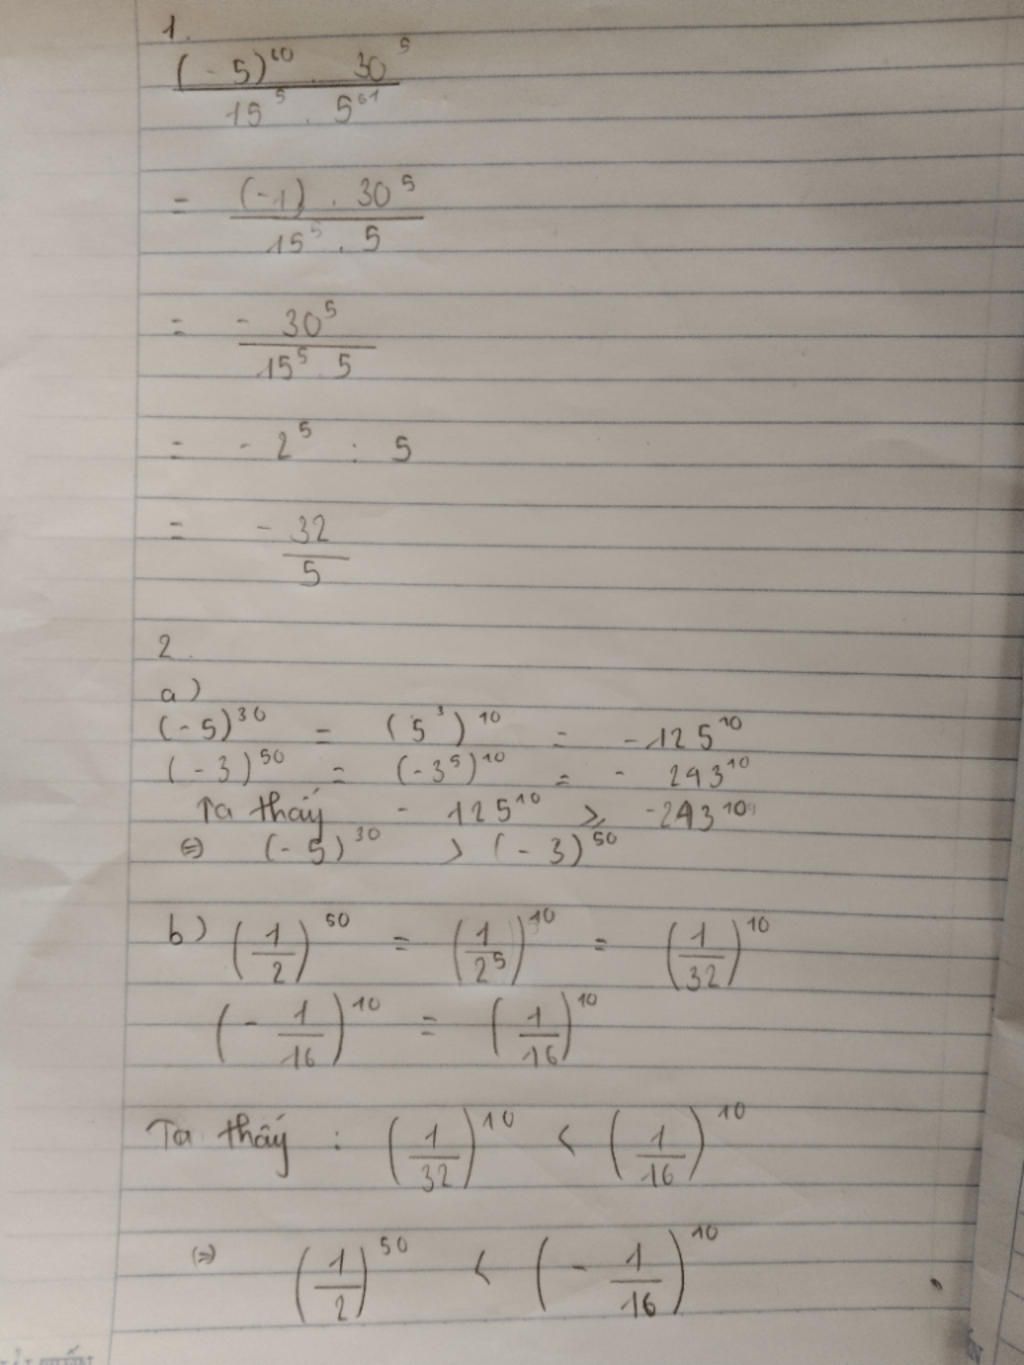 1.
(-5)^60 . 30^5 / 15^5 . 5^61
= (-1) . 30^5 / 15^5 . 5
= - 30^5 / 15^5 . 5
= - 2^5 : 5
= - 32 / 5
2.
a)
(-5)^30 = (5^3)^10 = -125^10
(-3)^50 = (-3^5)^10 = - 243^10
Ta thấy - 125^10 > -243^10
⇒ (-5)^30 > (-3)^50
b) (1/2)^50 = (1/2^5)^10 = (1/32)^10
(- 1/16)^10 = (1/16)^10
Ta thấy : (1/32)^10 < (1/16)^10
⇒ (1/2)^50 < (- 1/16)^10